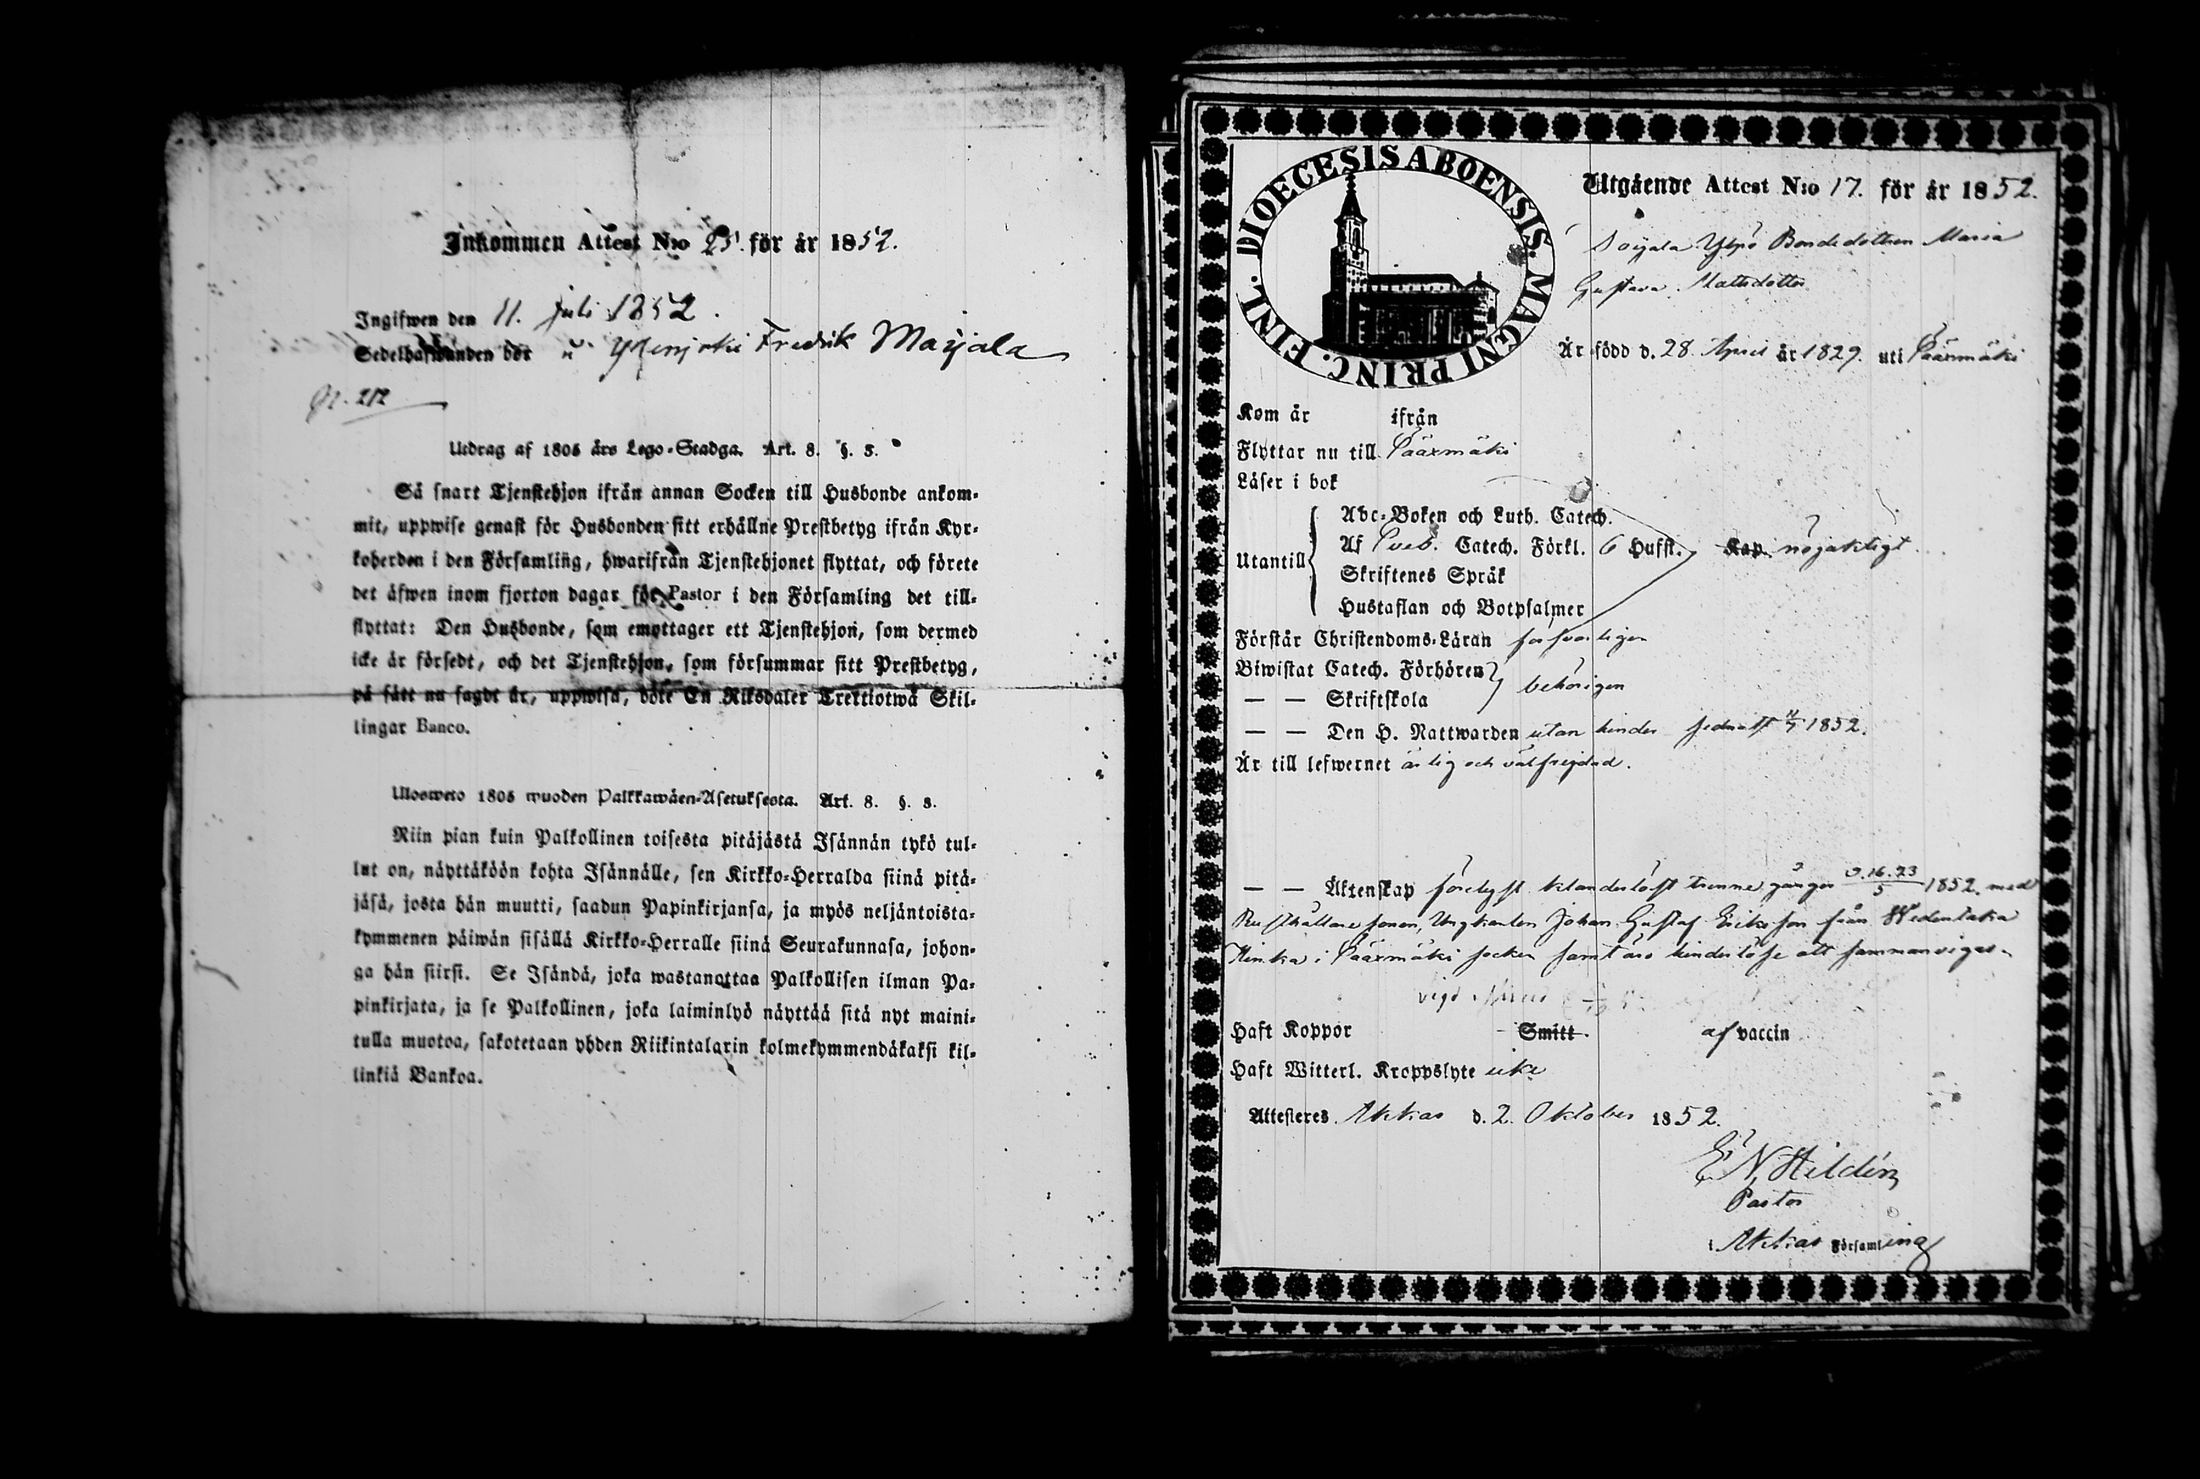 Inkommen Attest N:o 25. för år 1852.
Ingifwen den 11. Juli 1852.
Sedelhafwanden bör Fredrik Marjala
N. 212
Utdrag af 1805 års Lego-Stadga. Art. 8. §. 3.
Så snart Tjenstehjon ifrån annan Socken till Husbonde ankom-
mit, uppwise genast för Husbonden sitt erhållne Prestbetyg ifrån Kyr-
koherden i den Församling, hwarifrån Tjenstehjonet flyttat, och förete
det äfwen inom fjorton dagar för Pastor i den Församling det till-
flyttat: Den Husbonde, som emottager ett Tjenstehjon, som dermed
icke är försedt, och det Tjenstehjon, som försummar sitt Prestbetyg,
på sätt nu sagdt är, uppwisa, böte En Riksdaler Trettiotwå Skil-
lingar Banco.
Uloswето 1805 wuoden Palkkawäen-Asetuksesta. Art. 8. §. 3.
Niin pian kuin Palkollinen toisesta pitäjästä Isännän tykö tul-
lut on, näyttäköön kohta Isännälle, sen Kirkko-Herralda siinä pitä-
jäsä, josta hän muutti, saadun Papinkirjansa, ja myös neljäntoista-
kymmenen päiwän sisällä Kirkko-Herralle siinä Seurakunnasa, johon-
ga hän siirsi. Se Isändä, joka wastanottaa Palkollisen ilman Pa-
pinkirjata, ja se Palkollinen, joka laiminlyö näyttää sitä nyt maini-
tulla muotoa, sakotetaan yhden Riikintalarin kolmekymmendäkaksi kil-
linkiä Bankoa.
DIOECESIS ABOENSIS. MAGNI PRINC. FINL.
Utgående Attest N:o 17. för år 1852.
Bondedottren Maria
Gustava Mattsdotter
Är född d. 28 April år 1829. uti Pääxmäki
Kom år ifrån
Flyttar nu till Pääxmäki
Läser i bok
Utantill
Abc-Boken och Luth. Catech.
Af Sveb. Catech. Förkl. 6 Hufst. Kap. nöjaktigt.
Skriftenes Språk
Hustaflan och Botpsalmer
Förstår Christendoms-Läran försvarligen
Biwistat Catech. Förhören
— — Skriftskola behörigen
— — Den H. Nattwarden utan hinder sednast 11/7 1852.
Är till lefwernet ärlig och välfrejdad.
— — Äktenskap förelyst klanderlöst trenne gånger 9.16.23/5 1852. med
Rusthållare sonen, Ungkarlen Johan Gustaf Eriksson från
i Pääxmäki socken samt äro hinderlöse att sammanvigas.
vigd
Haft Koppor Smitt af vaccin
Haft Witterl. Kroppslyte icke
Attesteres Akkas d. 2. Oktober 1852.
E N Hildén
Pastor
i Akkas Församling